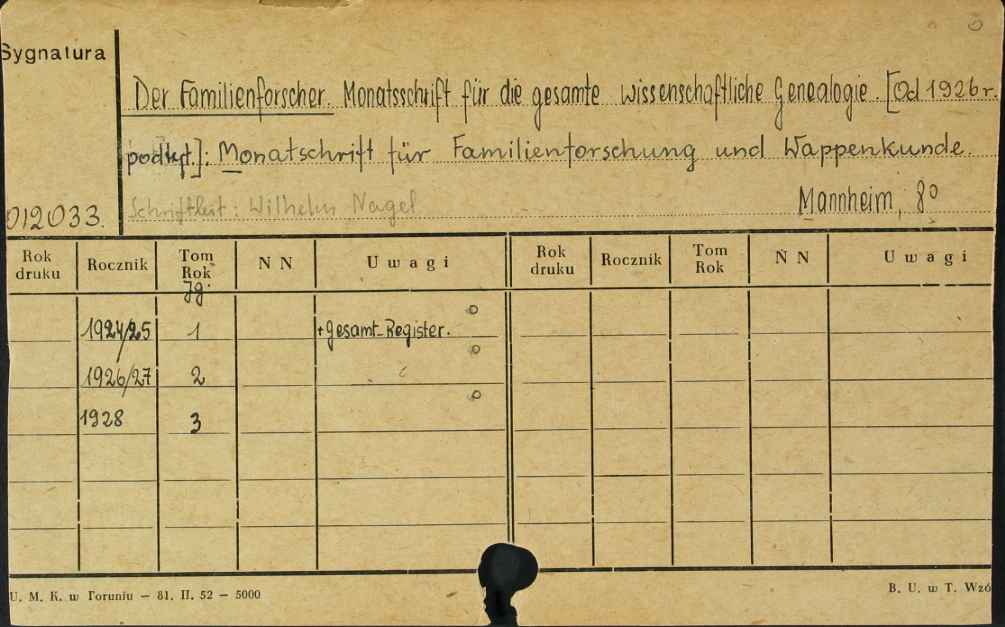 Sygnatura
Der Familienforscher. Monatsschrift für die gesamte wissenschaftliche Genealogie. [Od 1926 r.
podtyt.]: Monatschrift für Familienforschung und Wappenkunde.
Schriftleit: Wilhelm Nagel
Mannheim, 8°
012033.
Rok druku Rocznik Tom Rok N N Uwagi Rok druku Rocznik Tom Rok N N Uwagi
Jg.
1924/25 1 +Gesamt-Register.
1926/27 2
1928 3
U. M. K. w Toruniu — 81. II. 52 — 5000
B. U. w T. Wzó